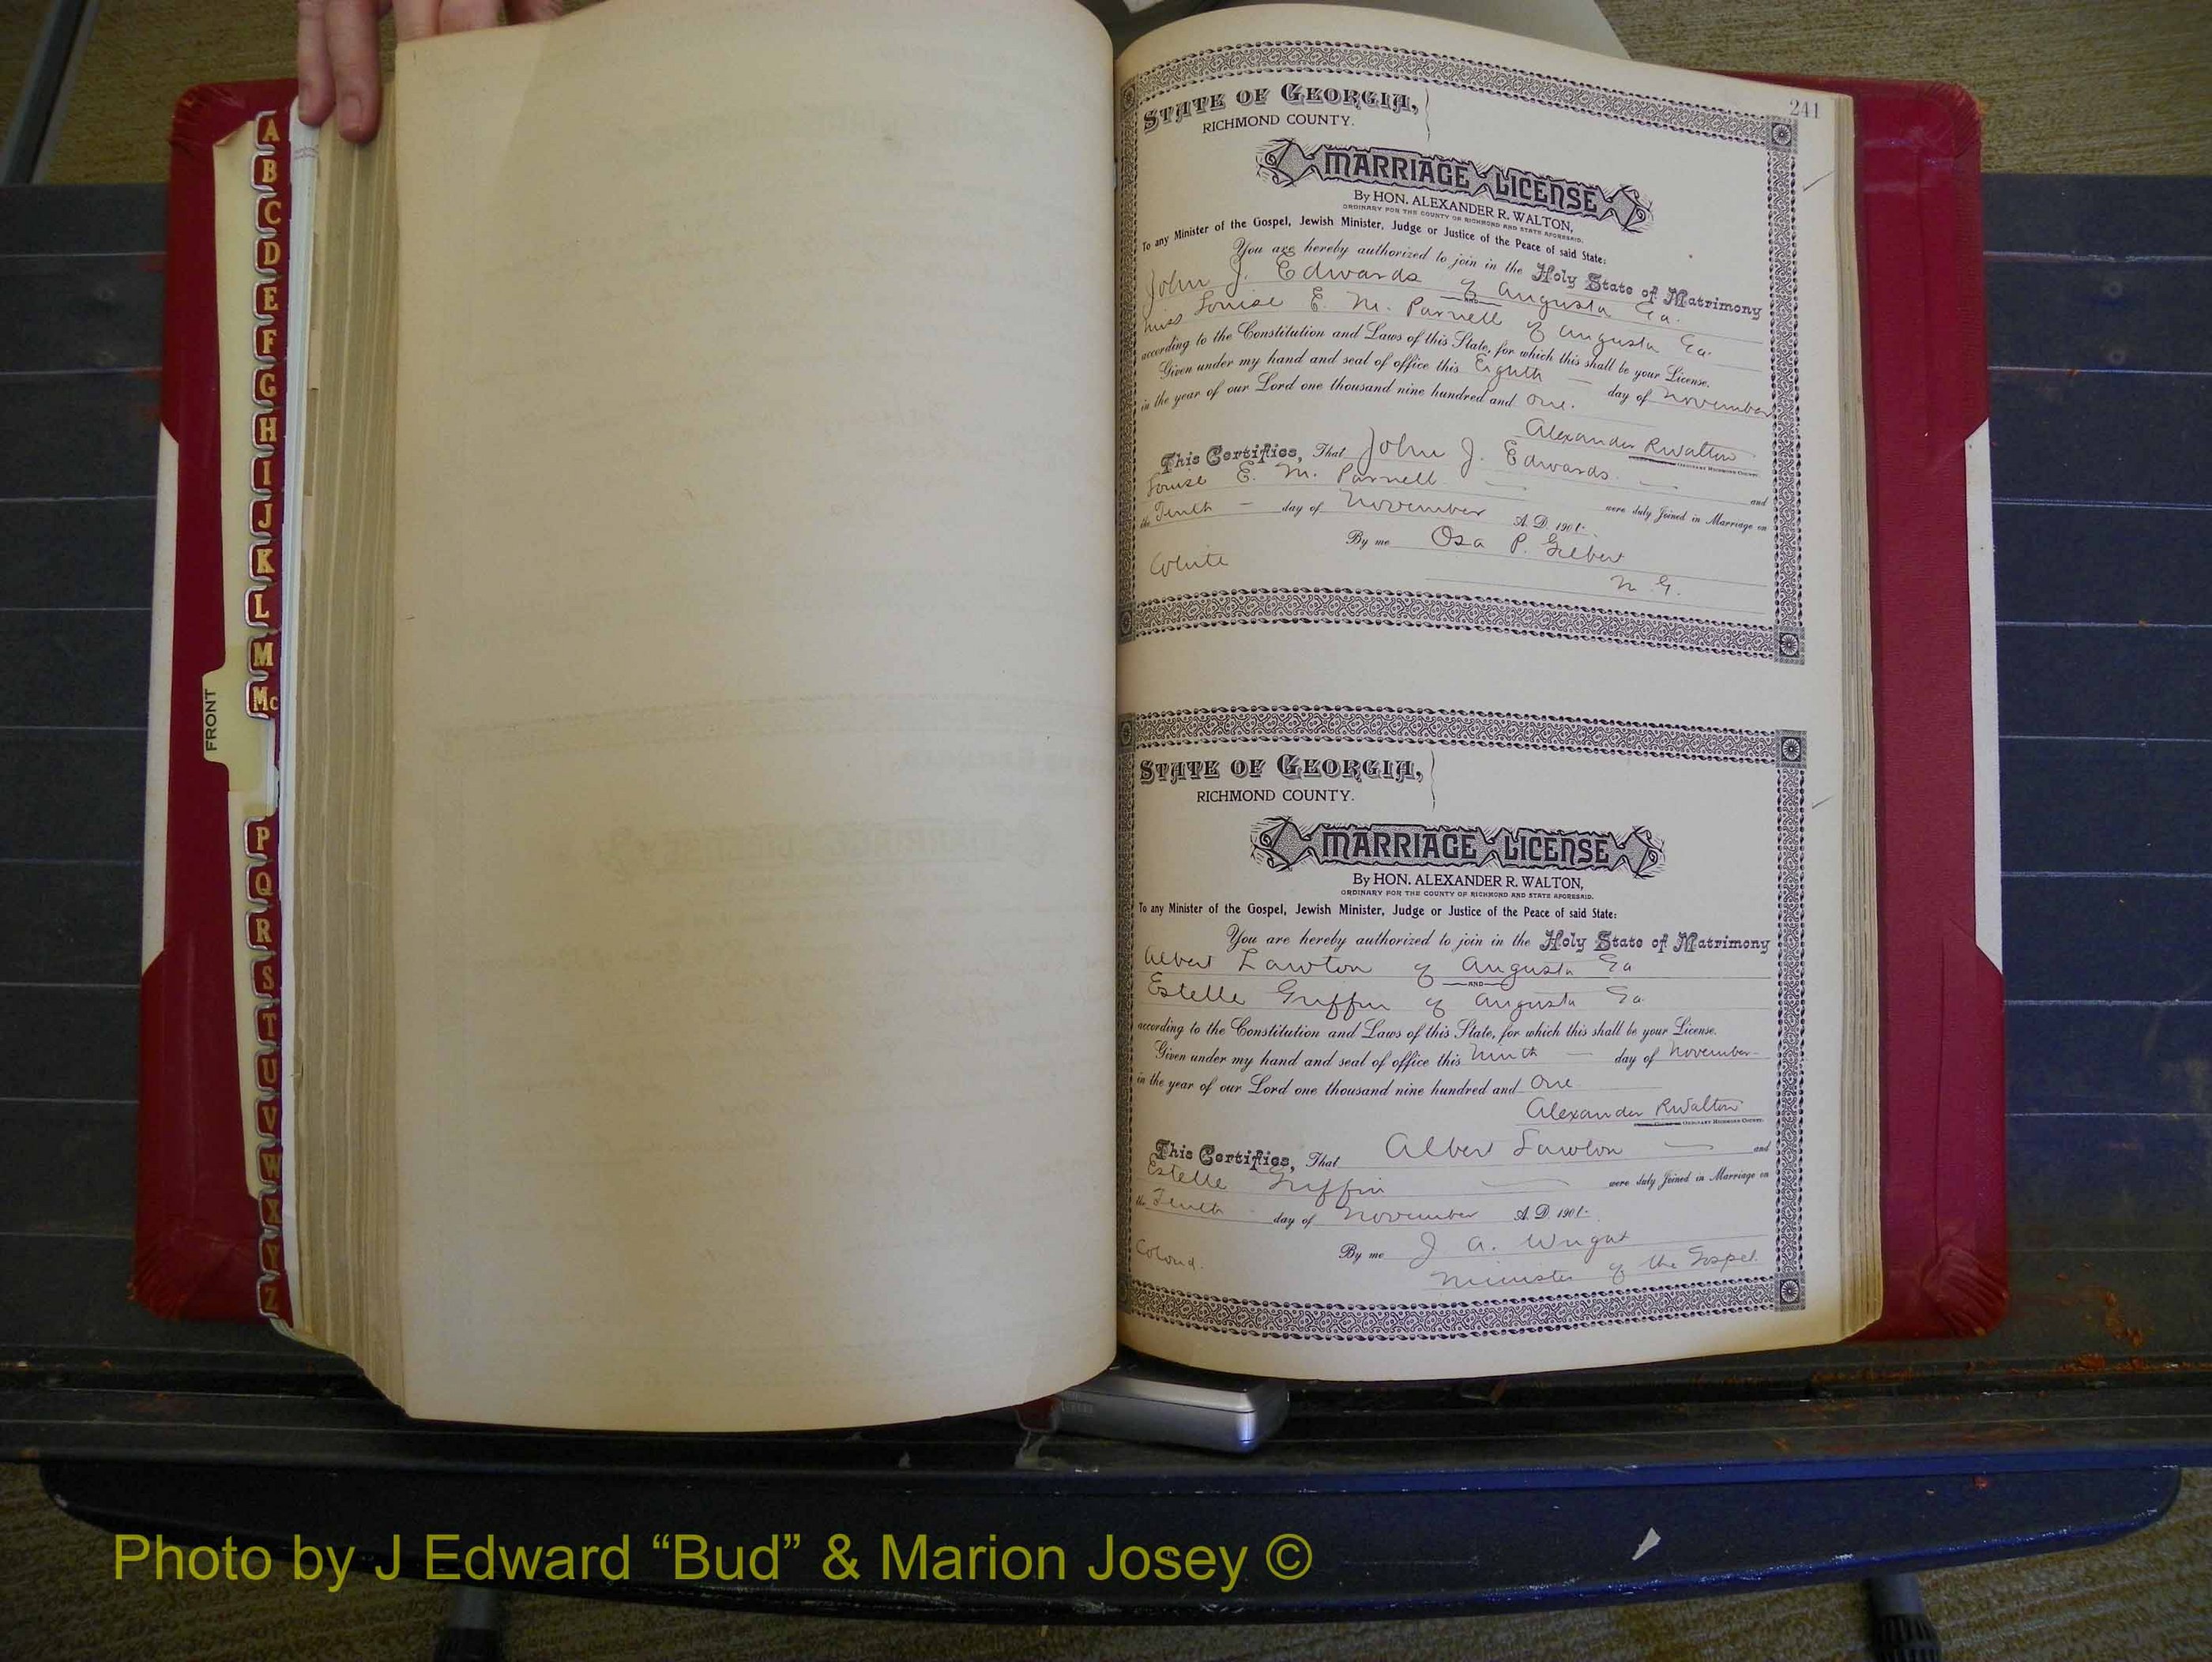 A
B
C
D
E
F
G
H
I
J
K
L
M
Mc
FRONT
P
Q
R
S
T
U
V
W
X
Y
Z
241
STATE OF GEORGIA,
RICHMOND COUNTY.
MARRIAGE LICENSE
By HON. ALEXANDER R. WALTON,
ORDINARY FOR THE COUNTY OF RICHMOND AND STATE AFORESAID.
To any Minister of the Gospel, Jewish Minister, Judge or Justice of the Peace of said State:
You are hereby authorized to join in the Holy State of Matrimony
John J. Edwards of Augusta Ga.
AND
Miss Louise E. M. Parnell of Augusta Ga.
according to the Constitution and Laws of this State, for which this shall be your License.
Given under my hand and seal of office this Eighth — day of November
in the year of our Lord one thousand nine hundred and One.
Alexander R Walton
ORDINARY RICHMOND COUNTY.
This Certifies, That John J. Edwards — and
Louise E. M. Parnell — were duly Joined in Marriage on
the Tenth — day of November A. D. 1901-
By me Osa P. Gilbert
White
M. G.
STATE OF GEORGIA,
RICHMOND COUNTY.
MARRIAGE LICENSE
By HON. ALEXANDER R. WALTON,
ORDINARY FOR THE COUNTY OF RICHMOND AND STATE AFORESAID.
To any Minister of the Gospel, Jewish Minister, Judge or Justice of the Peace of said State:
You are hereby authorized to join in the Holy State of Matrimony
Albert Lawton of Augusta Ga
AND
Estelle Griffin of Augusta Ga.
according to the Constitution and Laws of this State, for which this shall be your License.
Given under my hand and seal of office this Ninth — day of November-
in the year of our Lord one thousand nine hundred and One
Alexander R Walton
ORDINARY RICHMOND COUNTY.
This Certifies, That Albert Lawton — and
Estelle Griffin — were duly Joined in Marriage on
the Tenth day of November A. D. 1901-
By me J. A. Wright
Colored.
Minister of the Gospel.
Photo by J Edward “Bud” & Marion Josey ©